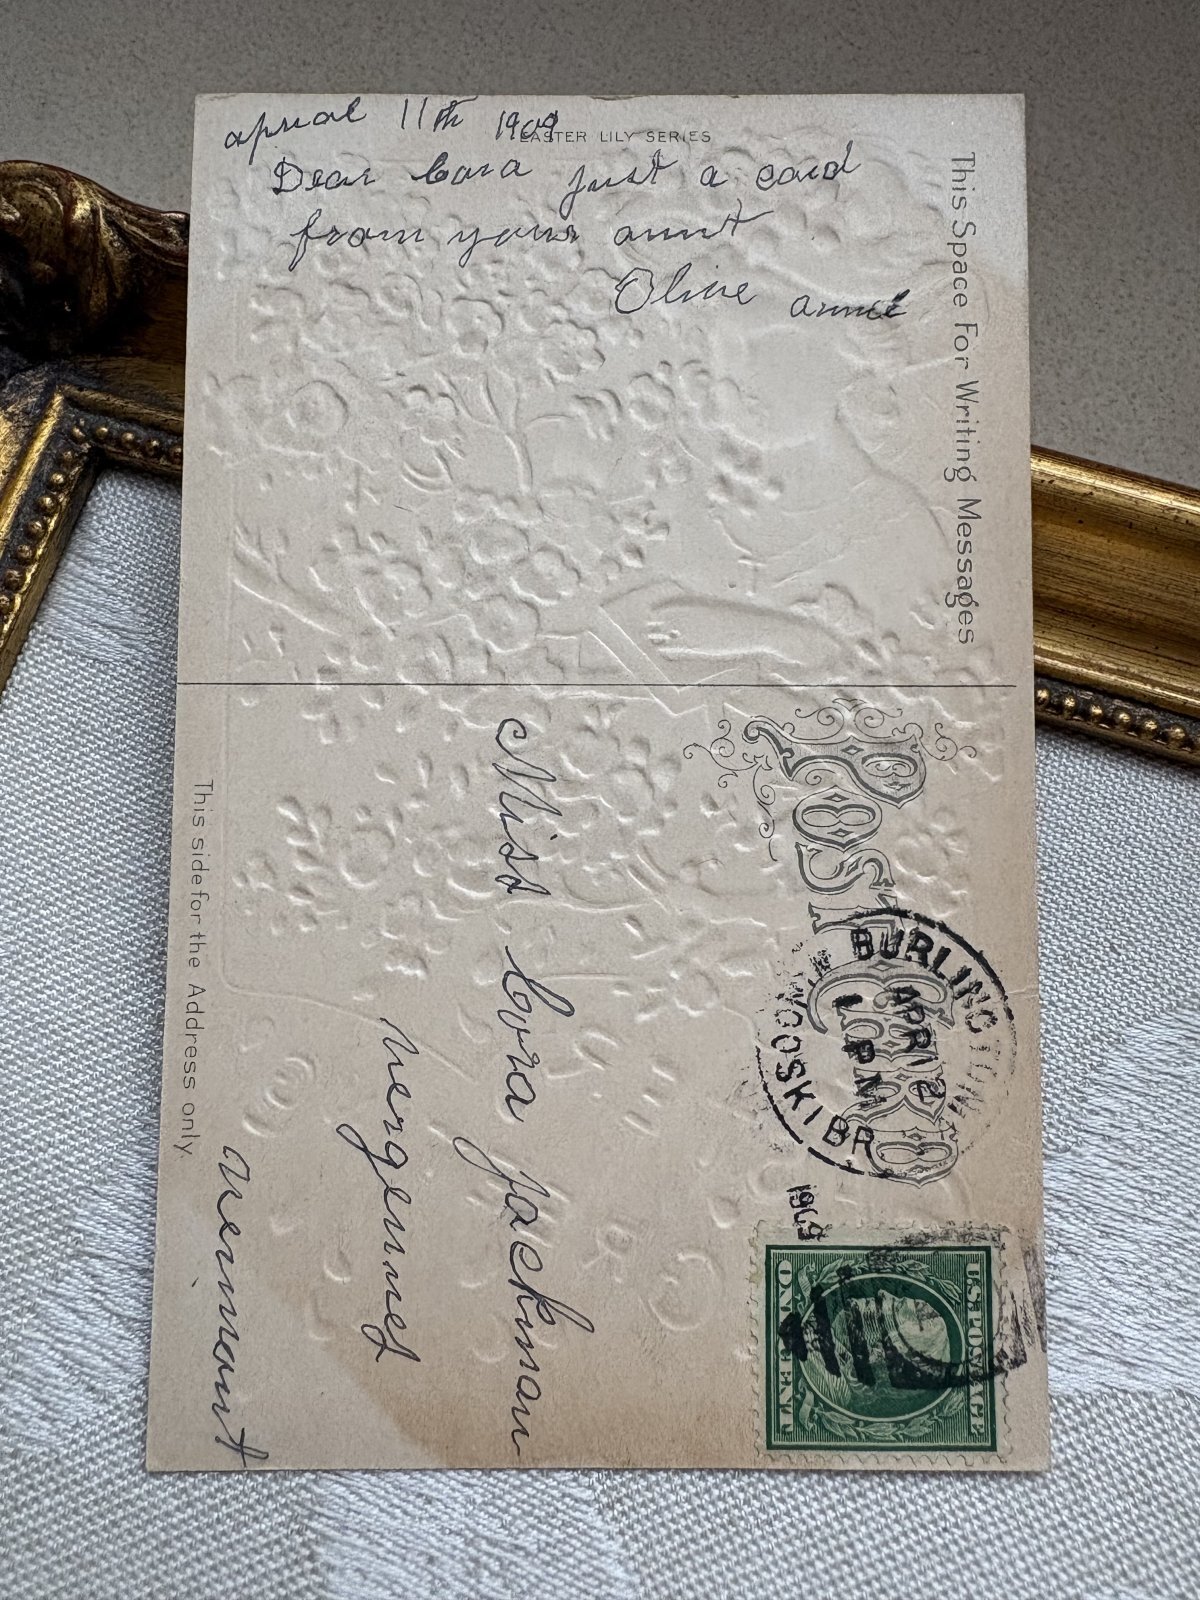 april 11th 1909
EASTER LILY SERIES
Dear Cora just a card
from your aunt
Olive annie
This Space For Writing Messages
POST CARD
BURLINGTON
APR 12
1 PM
WINOOSKI BR
1909
U.S. POSTAGE
ONE CENT
Miss Cora Jackman
Vergennes
Vermont
This side for the Address only